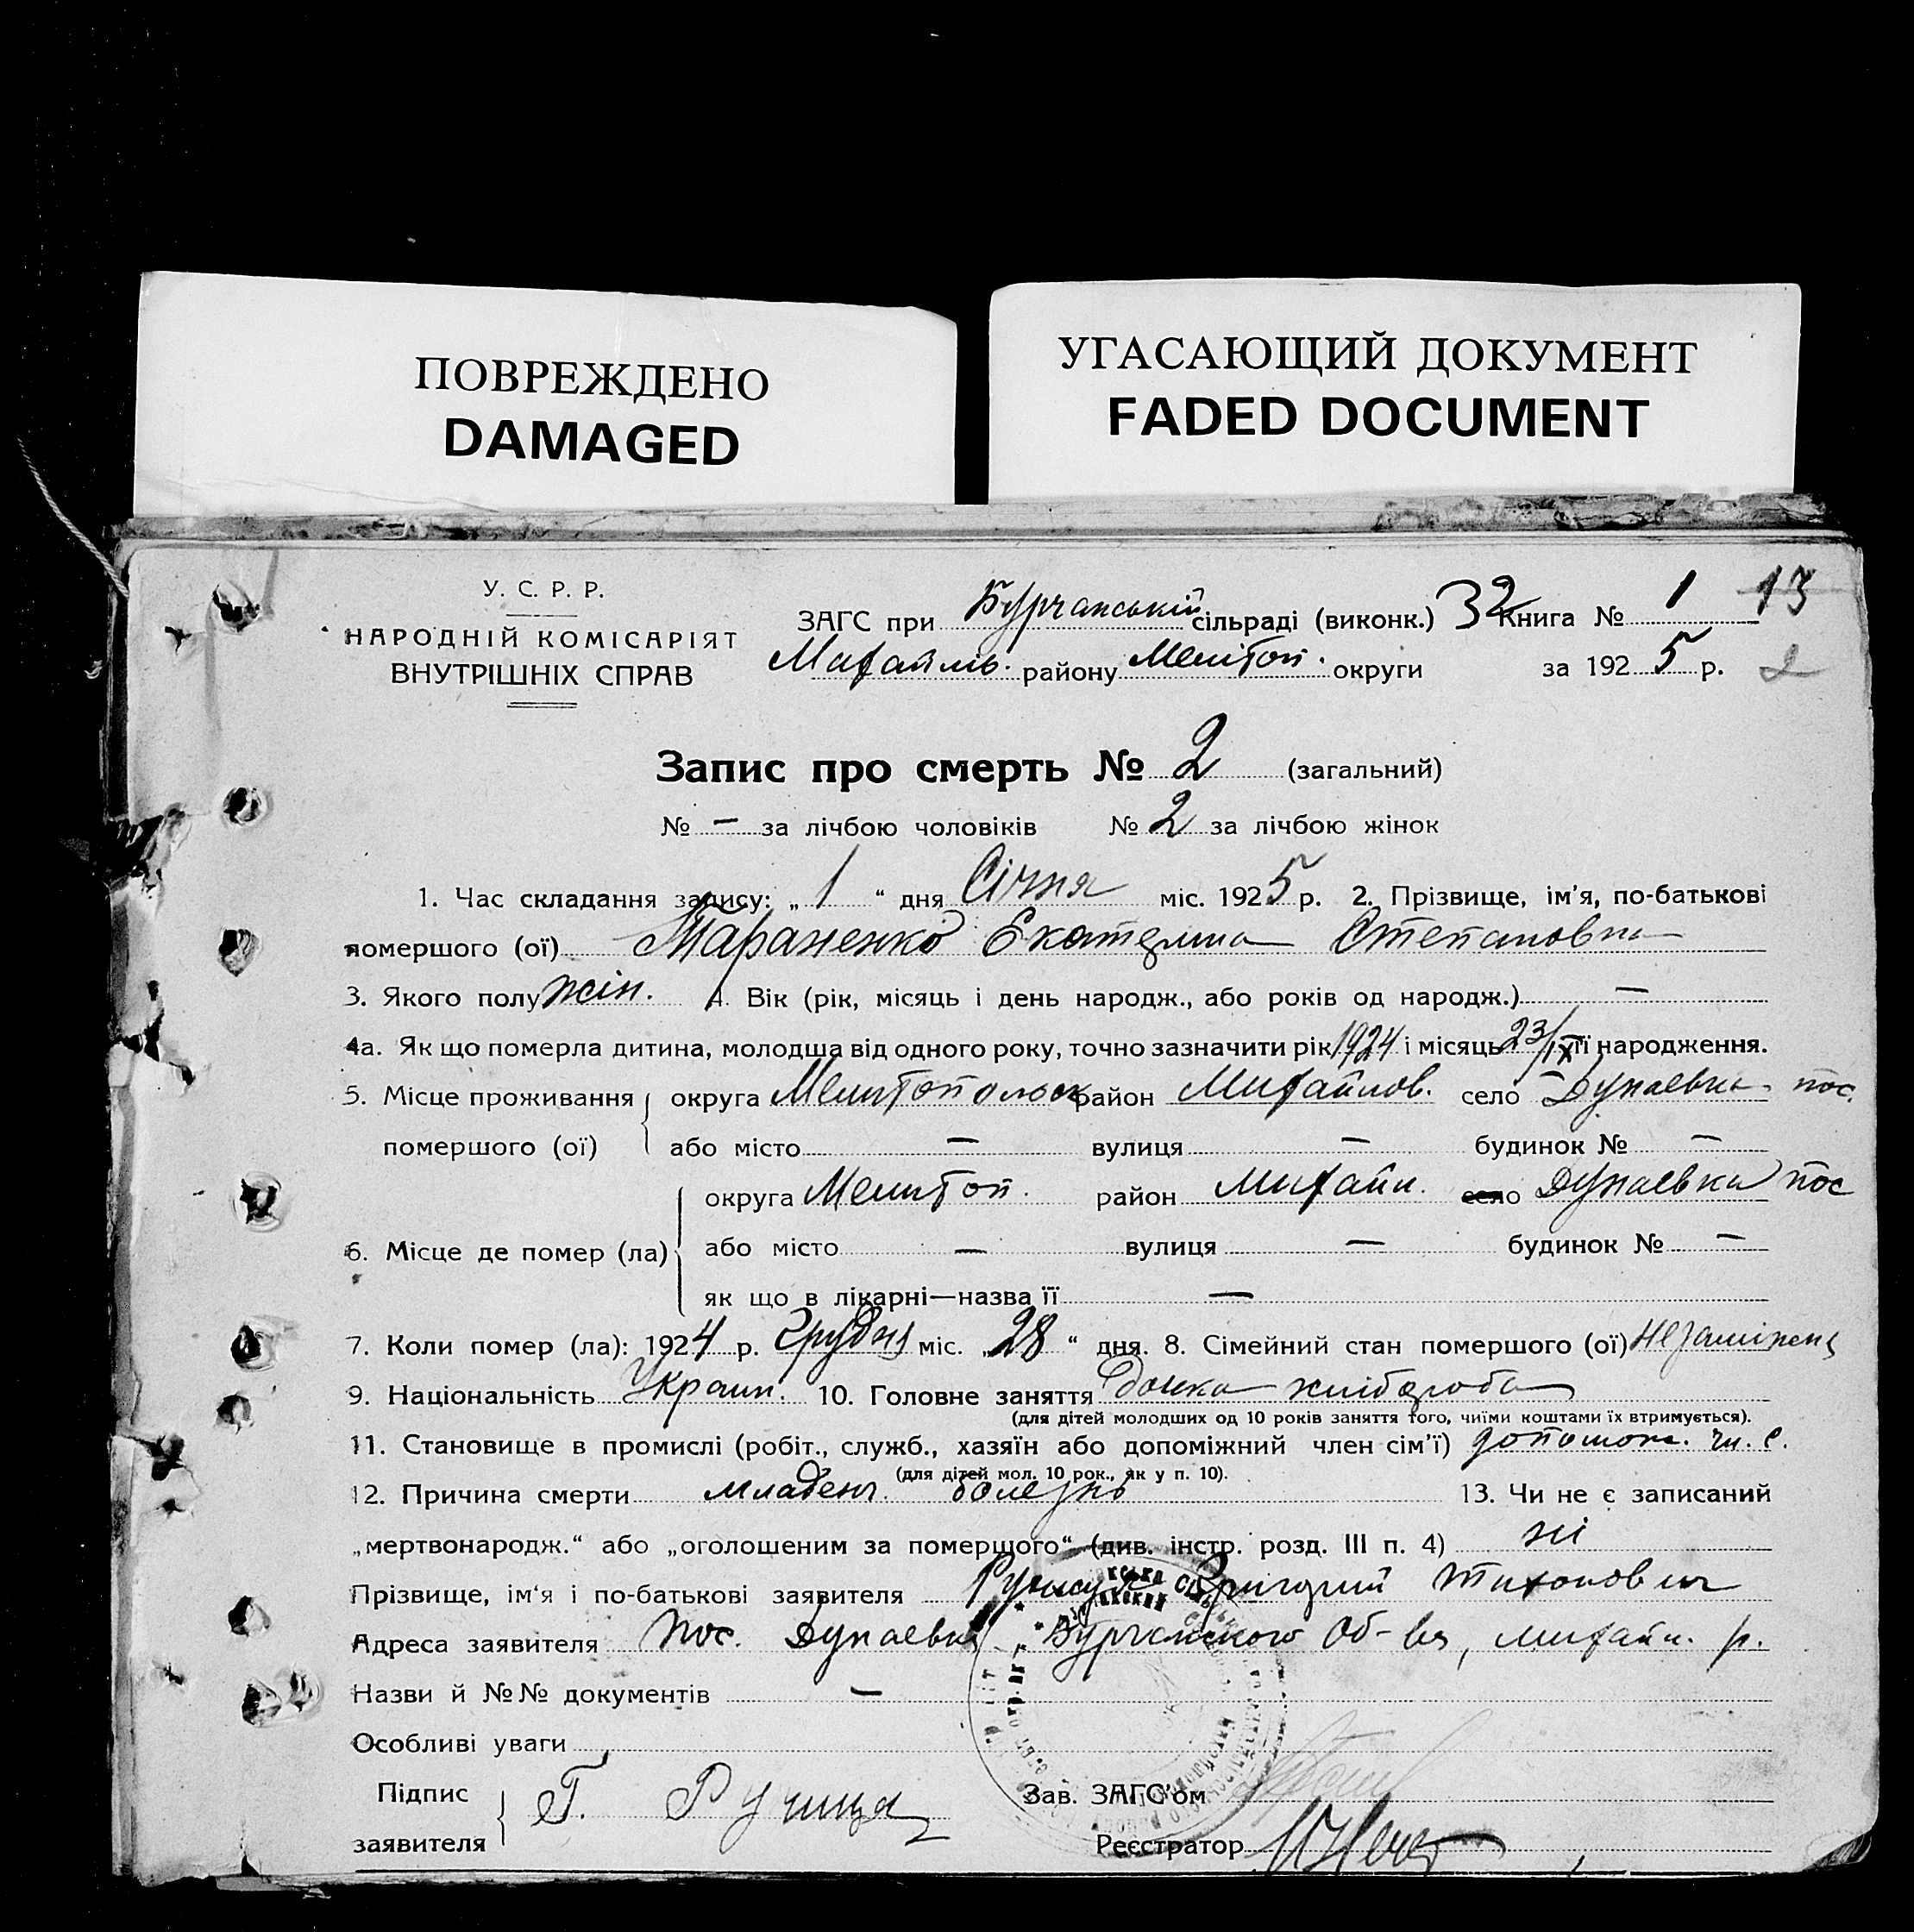 ПОВРЕЖДЕНО
DAMAGED
УГАСАЮЩИЙ ДОКУМЕНТ
FADED DOCUMENT
У. С. Р. Р.
НАРОДНІЙ КОМІСАРІЯТ
ВНУТРІШНІХ СПРАВ
ЗАГС при Бурчанській сільраді (виконк.) 32 Книга № 1 13
Михайлів. району Меліtоп. округи за 1925 р. 2
Запис про смерть № 2 (загальний)
№ — за лічбою чоловіків № 2 за лічбою жінок
1. Час складання запису: „ 1 “ дня Січня міс. 1925 р. 2. Прізвище, ім'я, по-батькові
помершого (ої) Тараненко Екатерина Степановна
3. Якого полу жін. 4. Вік (рік, місяць і день народж., або років од народж.) —
4а. Як що померла дитина, молодша від одного року, точно зазначити рік 1924 і місяць 23/IX її народження.
5. Місце проживання округа Мелитопольск район Михайлов. село Дунаевка пос.
помершого (ої) або місто — вулиця — будинок № —
округа Мелитоп. район Михайл. село Дунаевка пос
6. Місце де помер (ла) або місто — вулиця — будинок № —
як що в лікарні—назва її —
7. Коли помер (ла): 1924 р. Грудня міс. „28“ дня. 8. Сімейний стан помершого (ої) незаміжня
9. Національність Украин. 10. Головне заняття дочка хлібороба
(для дітей молодших од 10 років заняття того, чиїми коштами їх втримується).
11. Становище в промислі (робіт., служб., хазяїн або допоміжний член сім'ї) допомож. чл. с.
(для дітей мол. 10 рок., як у п. 10).
12. Причина смерти младенч. болезнь 13. Чи не є записаний
„мертвонародж.“ або „оголошеним за померщого“ (див. інстр. розд. III п. 4) ні
Прізвище, ім'я і по-батькові заявителя Григорий Тихонович
Адреса заявителя пос. Дунаевка Бурчанского Об-ва, михайл. р.
Назви й №№ документів —
Особливі уваги
Підпис
заявителя Г.
Зав. ЗАГС'ом
Реєстратор